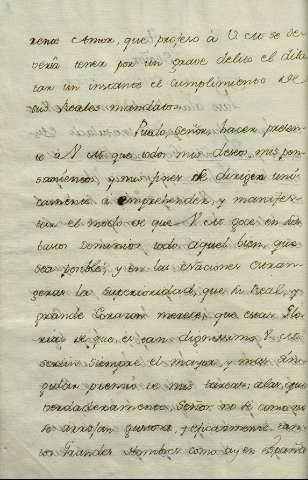 rente Amor, que profeso à V. M. se de
bería tener por un grave delito el dila
tar un instante el cumplimiento de
sus Reales mandatos.
Puedo Señor, hacer presen
te a V. M. que todos mis deseos, mis pen
samientos, y mis fines se dirigen uni
camente a emprehender, y manifes
tar el modo de que V. M. goce en sus
bastos Dominios todo aquel bien, que
sea posible, y en las Naciones estran
geras la superioridad, que su Real, y
grande Corazon merece, que estas Glo
rias de que es tan dignissimo V. M.
serán siempre el mayor, y mas sin
gular premio de mis tareas, a las que
verdaderamente, Señor, no sé como no
se arrojan gustosa, y eficazmente tan
tos Grandes Hombres como ay en España